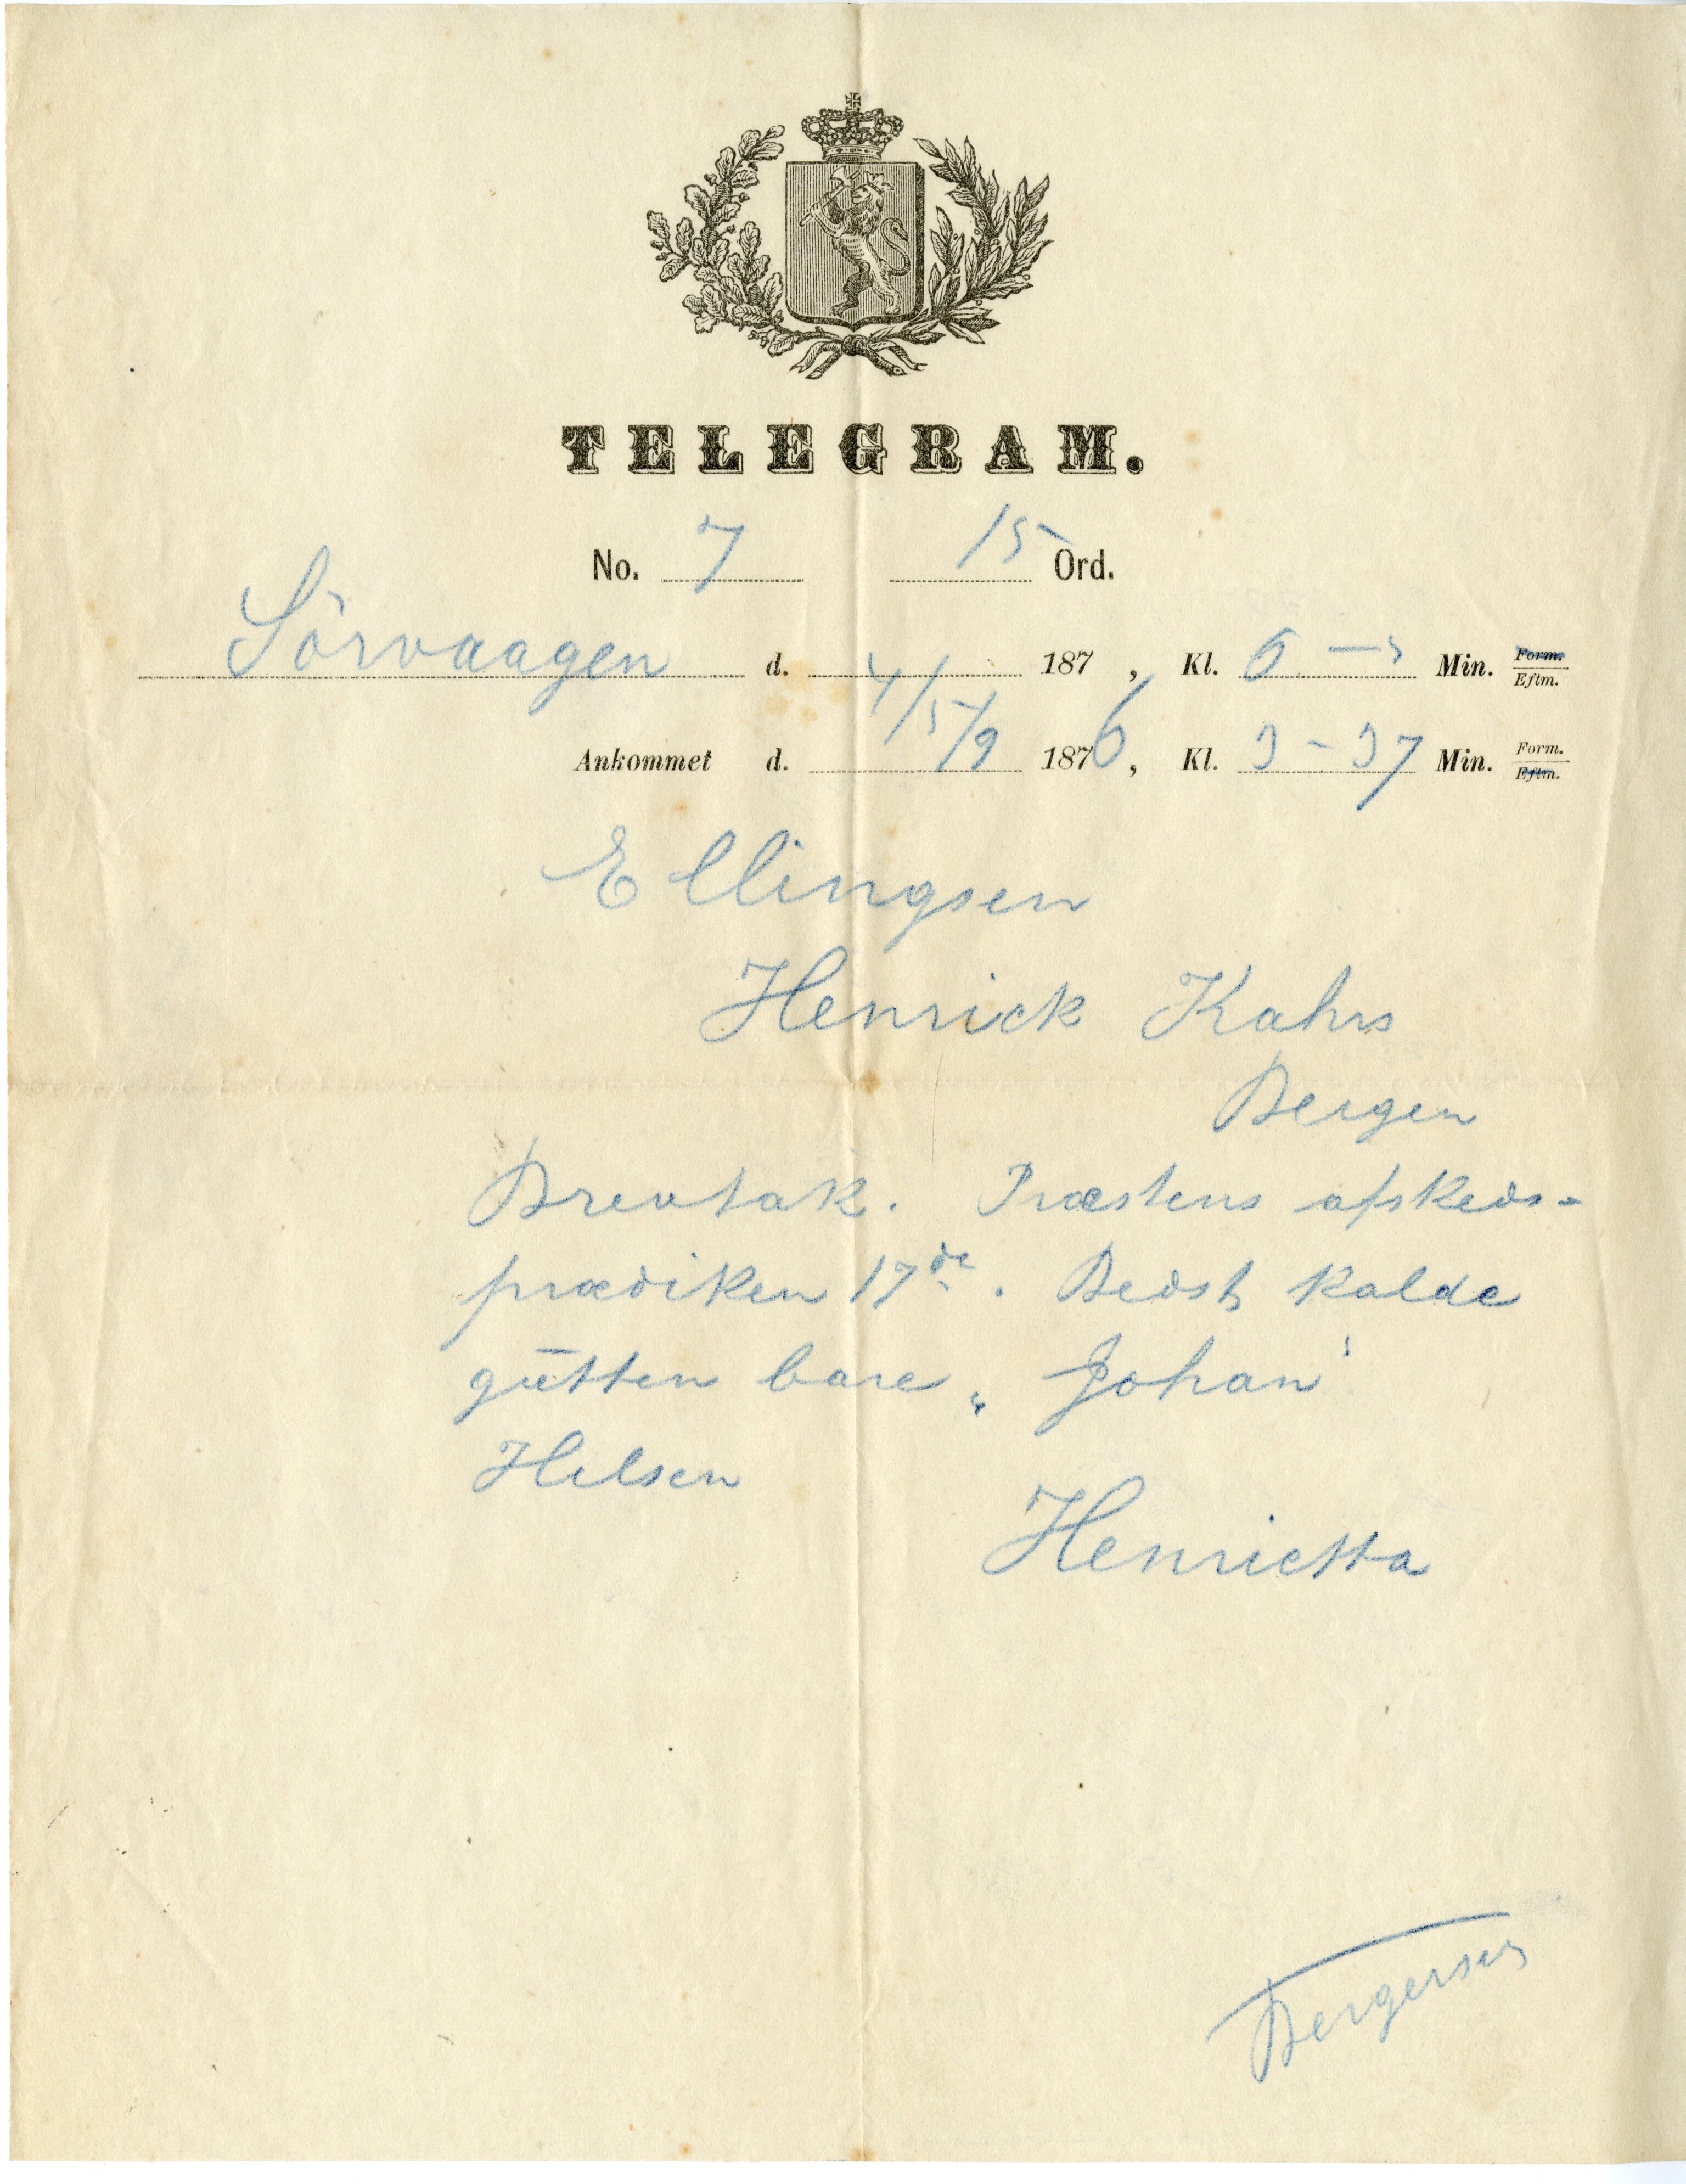 TELEGRAM.
No. 7 15 Ord.
Sörvaagen d. 4/ 187 , Kl. 6 — 5 Min. Form. Eftm.
Ankommet d. 5/9 1876, Kl. 9 - 37 Min. Form. Eftm.
Ellingsen
Henrick Kahrs
Bergen
Brevtak. Præstens afskeds-
prædiken 17de. Bedst kalde
gutten bare „Johan"
Hilsen
Henrietta
Bergersen